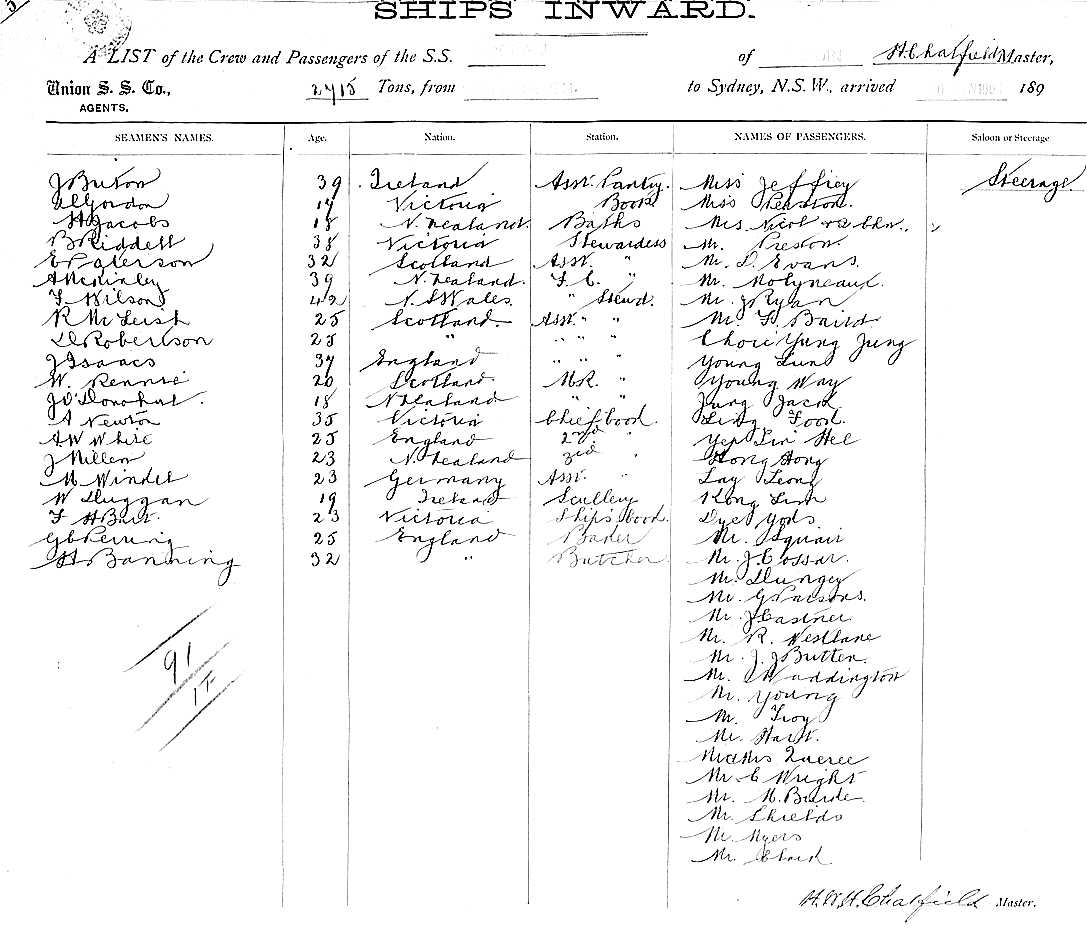 SHIPS INWARD.
A LIST of the Crew and Passengers of the S.S. of H. Chatfield Master,
Union S. S. Co., 2715 Tons, from to Sydney, N.S.W., arrived 189
AGENTS.
SEAMEN'S NAMES. Age. Nation. Station. NAMES OF PASSENGERS. Saloon or Steerage
J Buxon 39 Ireland Asst. Pantry. Miss Jeffrey Steerage.
Gordon 17 Victoria Books Miss
H Jacobs 18 N. Zealand. Baths Mrs Nicol + 2 Chn.
B Riddell 38 Victoria Stewardess Mr. Preston.
E Paterson 32 Scotland Asst. " Mr. D. Evans.
A McKinley 39 N. Zealand. F. C. " Mr. Molyneaux.
F Wilson 42 N. S Wales. " Stewd. Mr. J Ryan
R McLeish 25 Scotland. Asst. " " Mr. F. Baird
D Robertson 25 " " " " Choie Yung Jung
J Isaacs 34 England " " " Young Lun
W. Rennie 20 Scotland. M.R. " Young Way
J O'Donohue. 18 N Zealand " " Jung Jack
A Newton 35 Victoria Chief Cook. Ling Foon.
A W White 25 England 2nd " Yep Lin Hee
J Miller 23 N. Zealand 3rd " Hong Hong
M Windel 23 Germany Asst. " Lay Leong
W Duggan 19 Ireland Scullery Kong Lim
F H Burt. 23 Victoria Ship's Cook.
G C Perring 25 England Baker Mr. Squair
H Banning 32 " Butcher Mr. J. Cossar.
Mr. Dungey
Mr. G Parsons.
Mr. J Castner
Mr. R. Westlane
Mr. J. J Butten.
Mr. Waddington
Mr. Young
Mr. Troy
Mr. Hart.
Mr & Mrs Queree
Mr. C Wright
Mr. M. Burde.
Mr. Shields
Mr. Myers
Mr.
91
H. W. H. Chatfield Master.